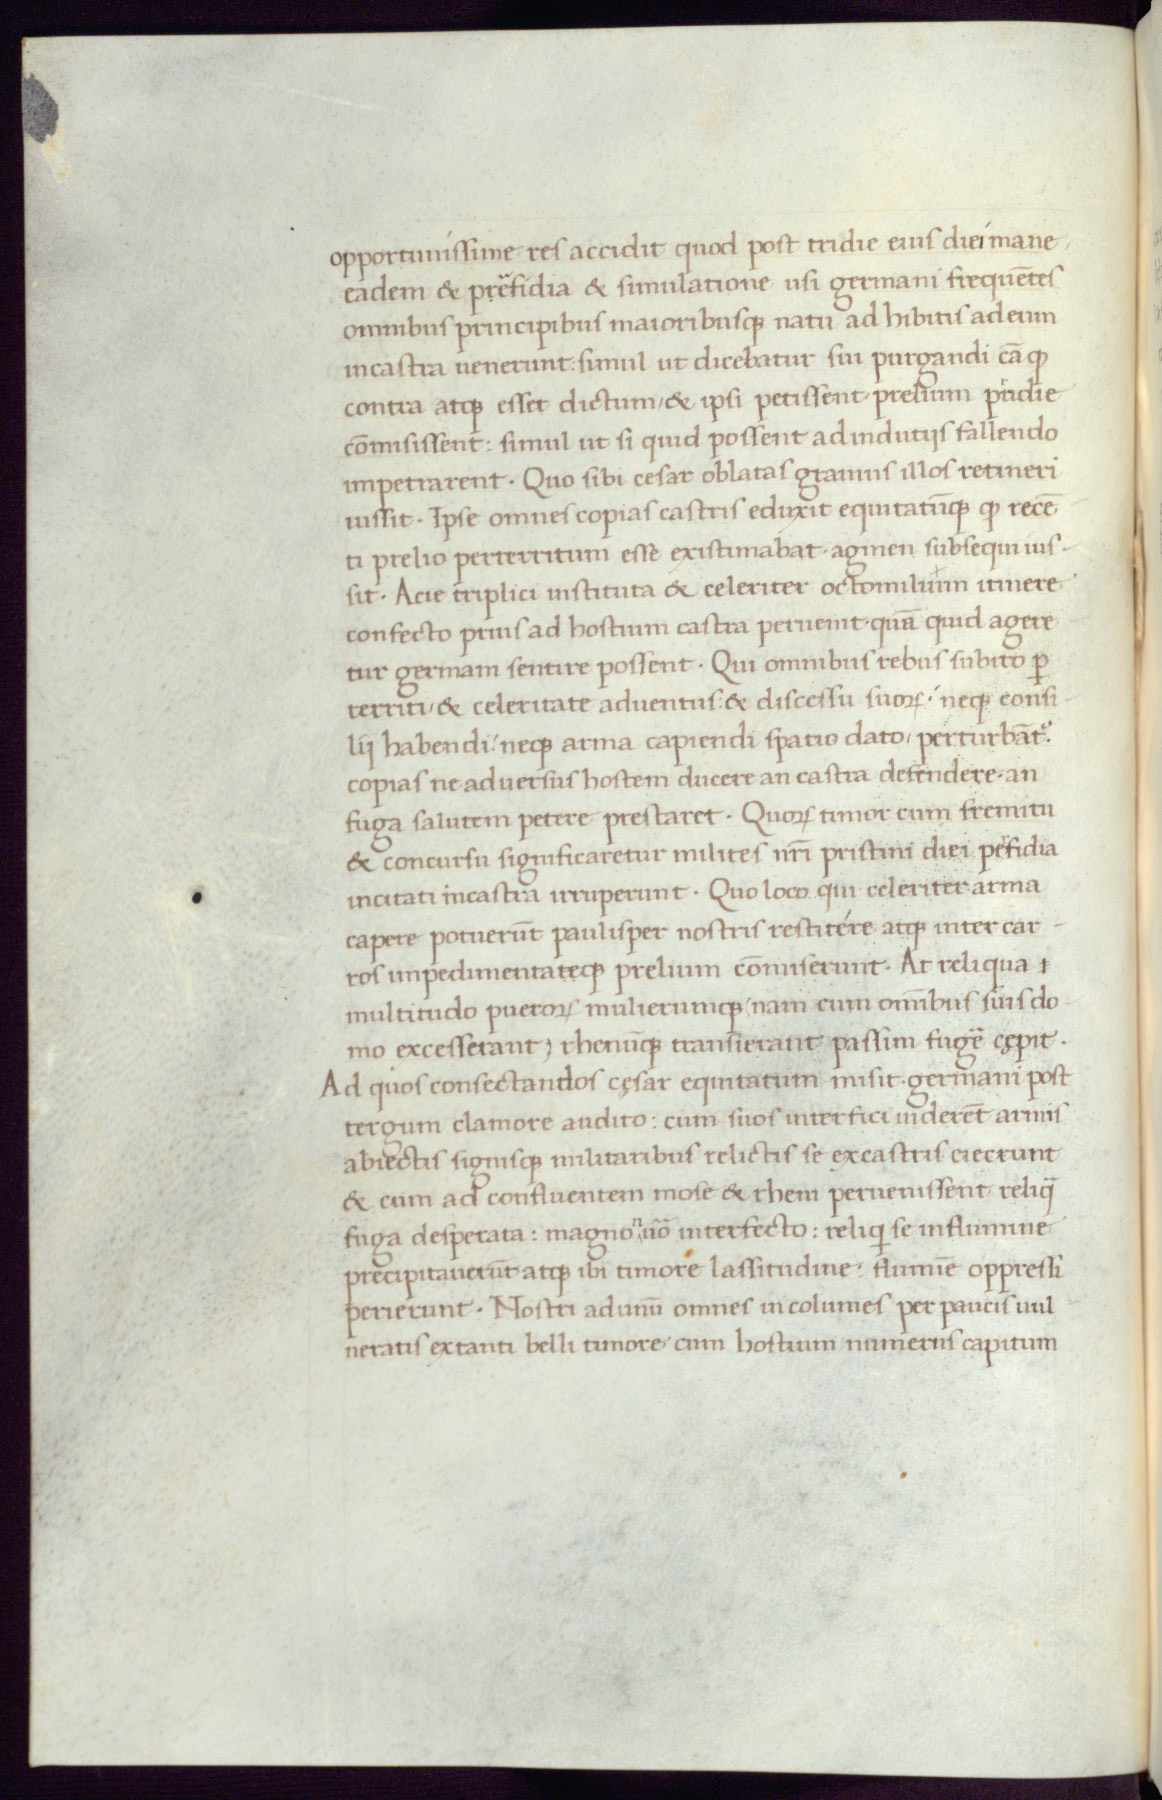 opportunissime res accidit quod post tridie eius diei mane
eadem & prefidia & simulatione usi germani frequētes
omnibus principibus maioribusq; natu ad hibitis adeum
incastra uenerunt: simul ut dicebatur sui purgandi cā qꝫ
contra atq; esset dictum, & ipsi petissent prelium pridie
cōmisissent: simul ut si quid possent adindutijs fallendo
impetrarent. Quo sibi cesar oblatas grauius illos retineri
iussit. Ipse omnes copias castris eduxit equitatūq; qꝫ recē
ti prelio perterritum esse existimabat. agmen subsequi ius-
sit. Acie triplici instituta & celeriter octomilium itinere
confecto prius ad hostium castra peruenit. quā quid agere
tur germani sentire possent. Qui omnibus rebus subito ꝑ
territi, & celeritate aduentus: & discessu suoꝝ: neq; consi-
lij habendi: neq; arma capiendi spatio dato, perturbāt᷒.
copias ne aduersus hostem ducere an castra defendere. an
fuga salutem petere prestaret. Quoꝝ timor cum fremitu
& concursu significaretur milites nr̄i pristini diei perfidia
incitati incastra irruperunt. Quo loco qui celeriter arma
capere potuerūt paulisper nostris restitére atq; inter car-
ros impedimentateq; prelium cōmiserunt. At reliqua
multitudo pueroꝝ mulierumq; (nam cum omībus suis do-
mo excesserant) rhenūq; transierant passim fugē cępit.
Ad quos consectandos cęsar equitatum misit. germani post
tergum clamore audito: cum suos interfici uiderēt armis
abiectis signisq; militaribus relictis se excastris eiecerunt
& cum ad confluentem mose & rheni peruenissent reliq̄
fuga desperata: magno nūo interfecto: reliqi se influmine
precipitauerūt atq; ibi timore lassitudine. flumīe oppressi
perierunt. Nostri adunū omnes incolumes per paucis uul-
neratis extanti belli timore cum hostium numerus capitum